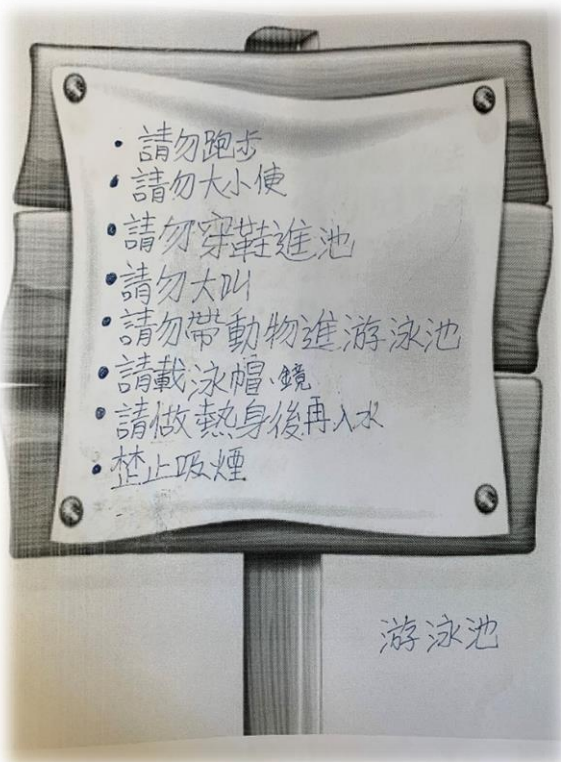 ・請勿跑步
・請勿大小便
・請勿穿鞋進池
・請勿大叫
・請勿帶動物進游泳池
・請載泳帽、鏡
・請做熱身後再入水
・禁止吸煙
游泳池